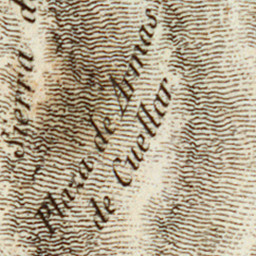 Sierra d
Plaza de Armas
de Cuellar